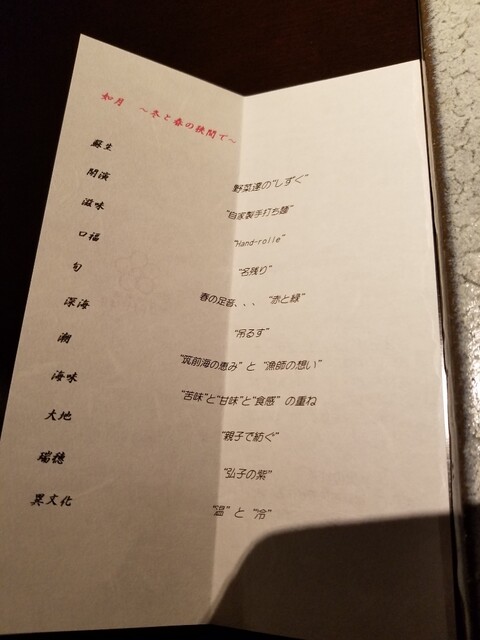 如月 ～冬と春の狭間で～
蘇生 野菜達の"しずく"
開演 "自家製手打ち麺"
滋味 "Hand-rolle"
口福 "名残り"
旬 春の足音、、、 "赤と緑"
深海 "吊るす"
潮 "筑前海の恵み" と "漁師の想い"
海味 "苦味"と"甘味"と"食感" の重ね
大地 "親子で紡ぐ"
瑞穂 "弘子の紫"
異文化 "温" と "冷"